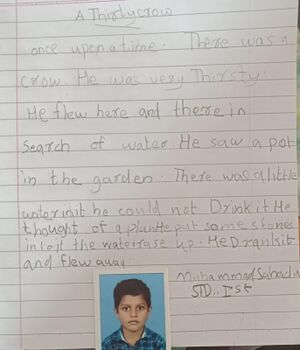 A Thirsty crow
once upon a time. There was a
crow. He was very Thirsty.
He flew here and there in
Search of water He saw a pot
in the garden. There was a little
water in it he could not Drink it He
thought of a plan He put some stones
into it the water rase up. He Drank it
and flew away.
Muhammad
STD.. Ist